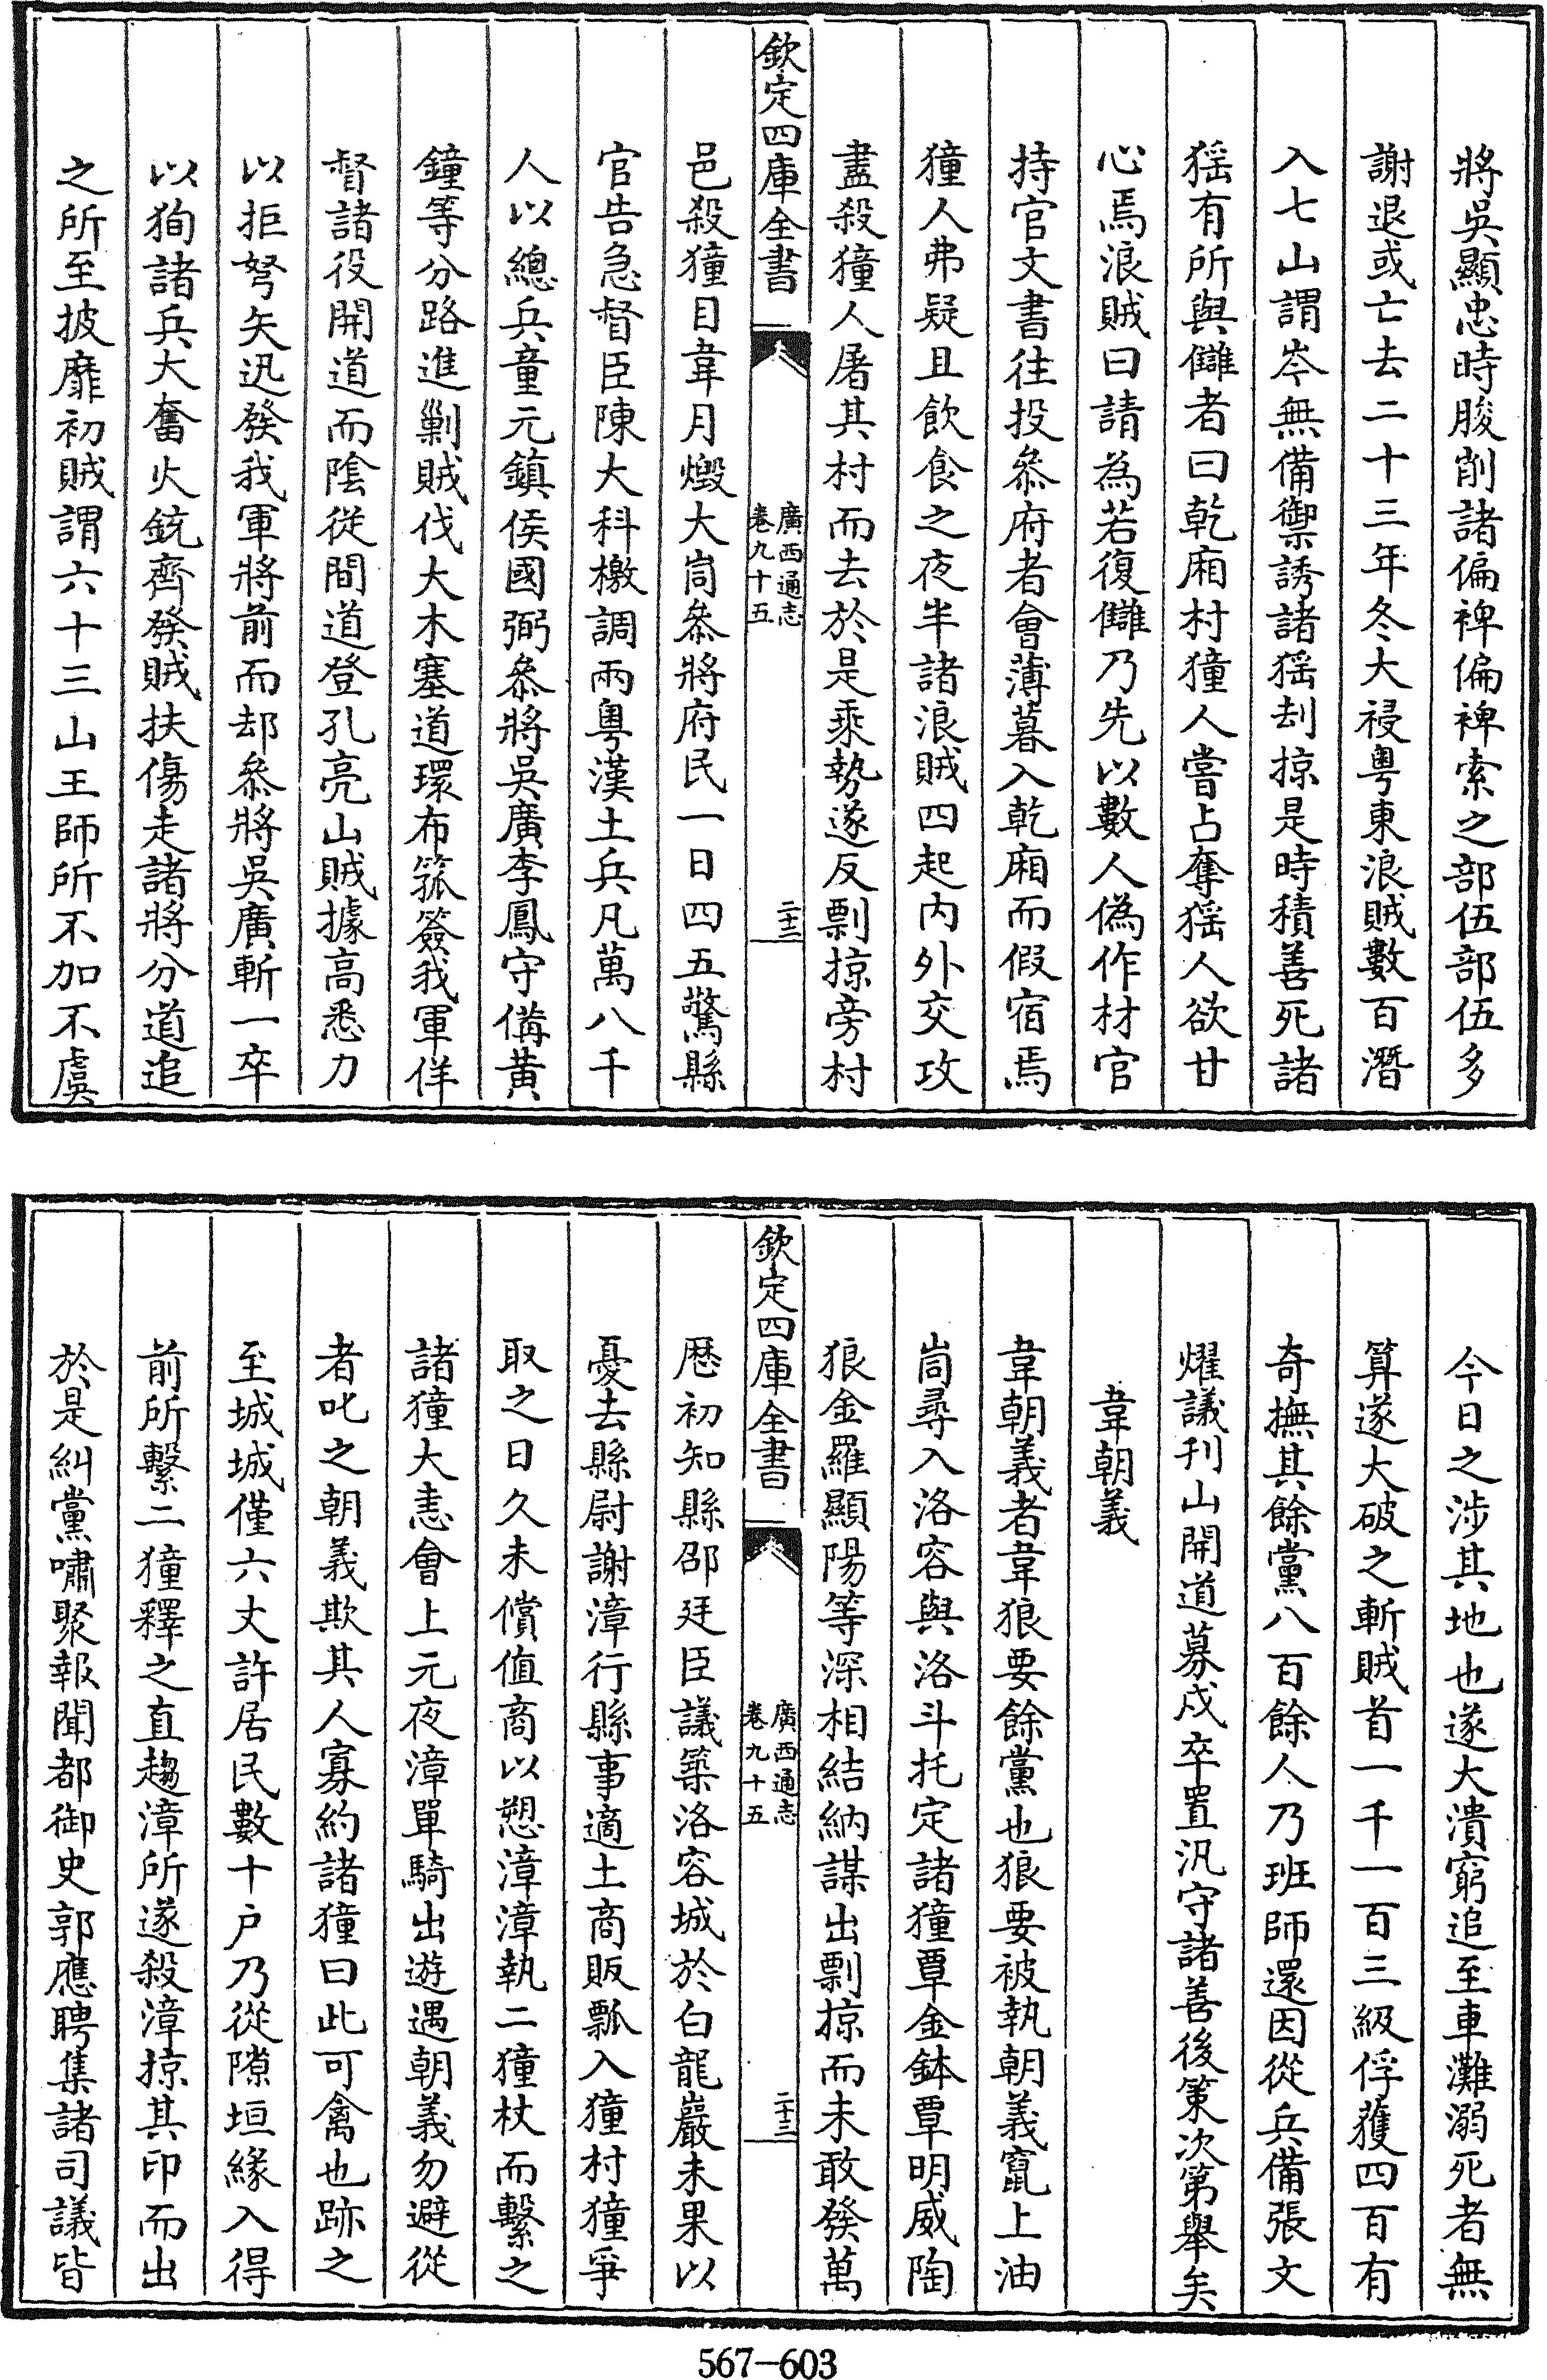 將吳顯忠時朘削諸偏裨偏裨索之部伍部伍多
謝退或亡去二十三年冬大祲粤東浪賊數百潛
入七山謂岑無備禦誘諸猺刦掠是時積善死諸
猺有所與讎者曰乾廂村獞人嘗占奪猺人欲甘
心焉浪賊曰請為若復讎乃先以數人偽作材官
持官文書往投叅府者會薄暮入乾廂而假宿焉
獞人弗疑且飲食之夜半諸浪賊四起内外交攻
盡殺獞人屠其村而去於是乘勢遂反剽掠旁村
欽定四庫全書
廣西通志
卷九十五
二十二
邑殺獞目韋月燬大峝叅將府民一日四五驚縣
官告急督臣陳大科檄調兩粤漢土兵凡萬八千
人以總兵童元鎮侯國弼叅將吳廣李鳳守備黄
鐘等分路進剿賊伐大木塞道環布箛簽我軍佯
督諸役開道而陰從間道登孔亮山賊據高悉力
以拒弩矢迅發我軍將前而却叅將吳廣斬一卒
以狥諸兵大奮火銃齊發賊扶傷走諸將分道追
之所至披靡初賊謂六十三山王師所不加不虞
今日之涉其地也遂大潰窮追至車灘溺死者無
算遂大破之斬賊首一千一百三級俘獲四百有
奇撫其餘黨八百餘人乃班師還因從兵備張文
燿議刋山開道募戍卒置汛守諸善後策次第舉矣
韋朝義
韋朝義者韋狼要餘黨也狼要被執朝義竄上油
峝尋入洛容與洛斗托定諸獞覃金鉢覃明威陶
狼金羅顯陽等深相結納謀出剽掠而未敢發萬
欽定四庫全書
廣西通志
卷九十五
二十三
厯初知縣邵廷臣議築洛容城於白龍巖未果以
憂去縣尉謝漳行縣事適土商販瓢入獞村獞爭
取之日久未償值商以愬漳漳執二獞杖而繫之
諸獞大恚會上元夜漳單騎出遊遇朝義勿避從
者叱之朝義欺其人寡約諸獞曰此可禽也跡之
至城城僅六丈許居民數十户乃從隙垣緣入得
前所繫二獞釋之直趨漳所遂殺漳掠其印而出
於是糾黨嘯聚報聞都御史郭應聘集諸司議皆
567-603